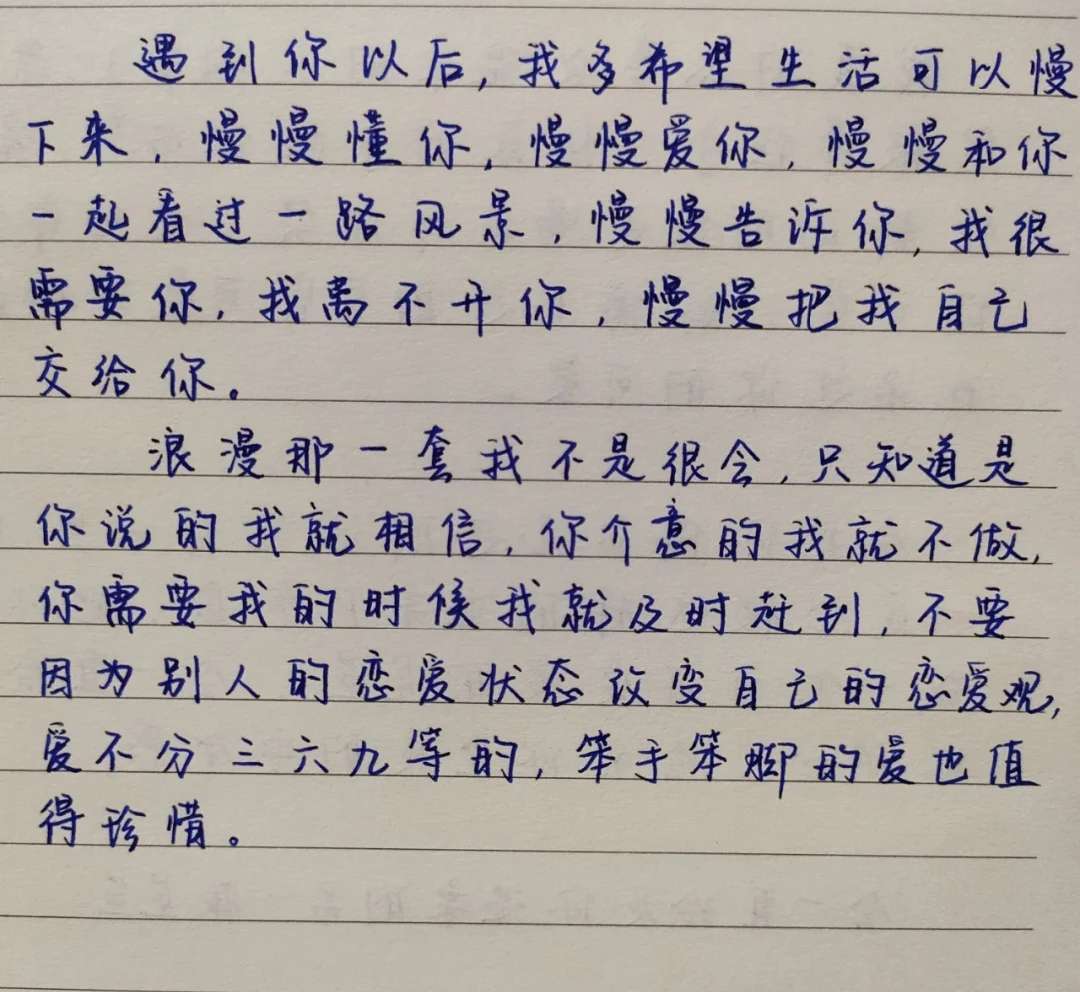 遇到你以后,我多希望生活可以慢
下来,慢慢懂你,慢慢爱你,慢慢和你
一起看过一路风景,慢慢告诉你,我很
需要你,我离不开你,慢慢把我自己
交给你。
浪漫那一套我不是很会,只知道是
你说的我就相信,你介意的我就不做,
你需要我的时候我就及时赶到,不要
因为别人的恋爱状态改变自己的恋爱观,
爱不分三六九等的,笨手笨脚的爱也值
得珍惜。